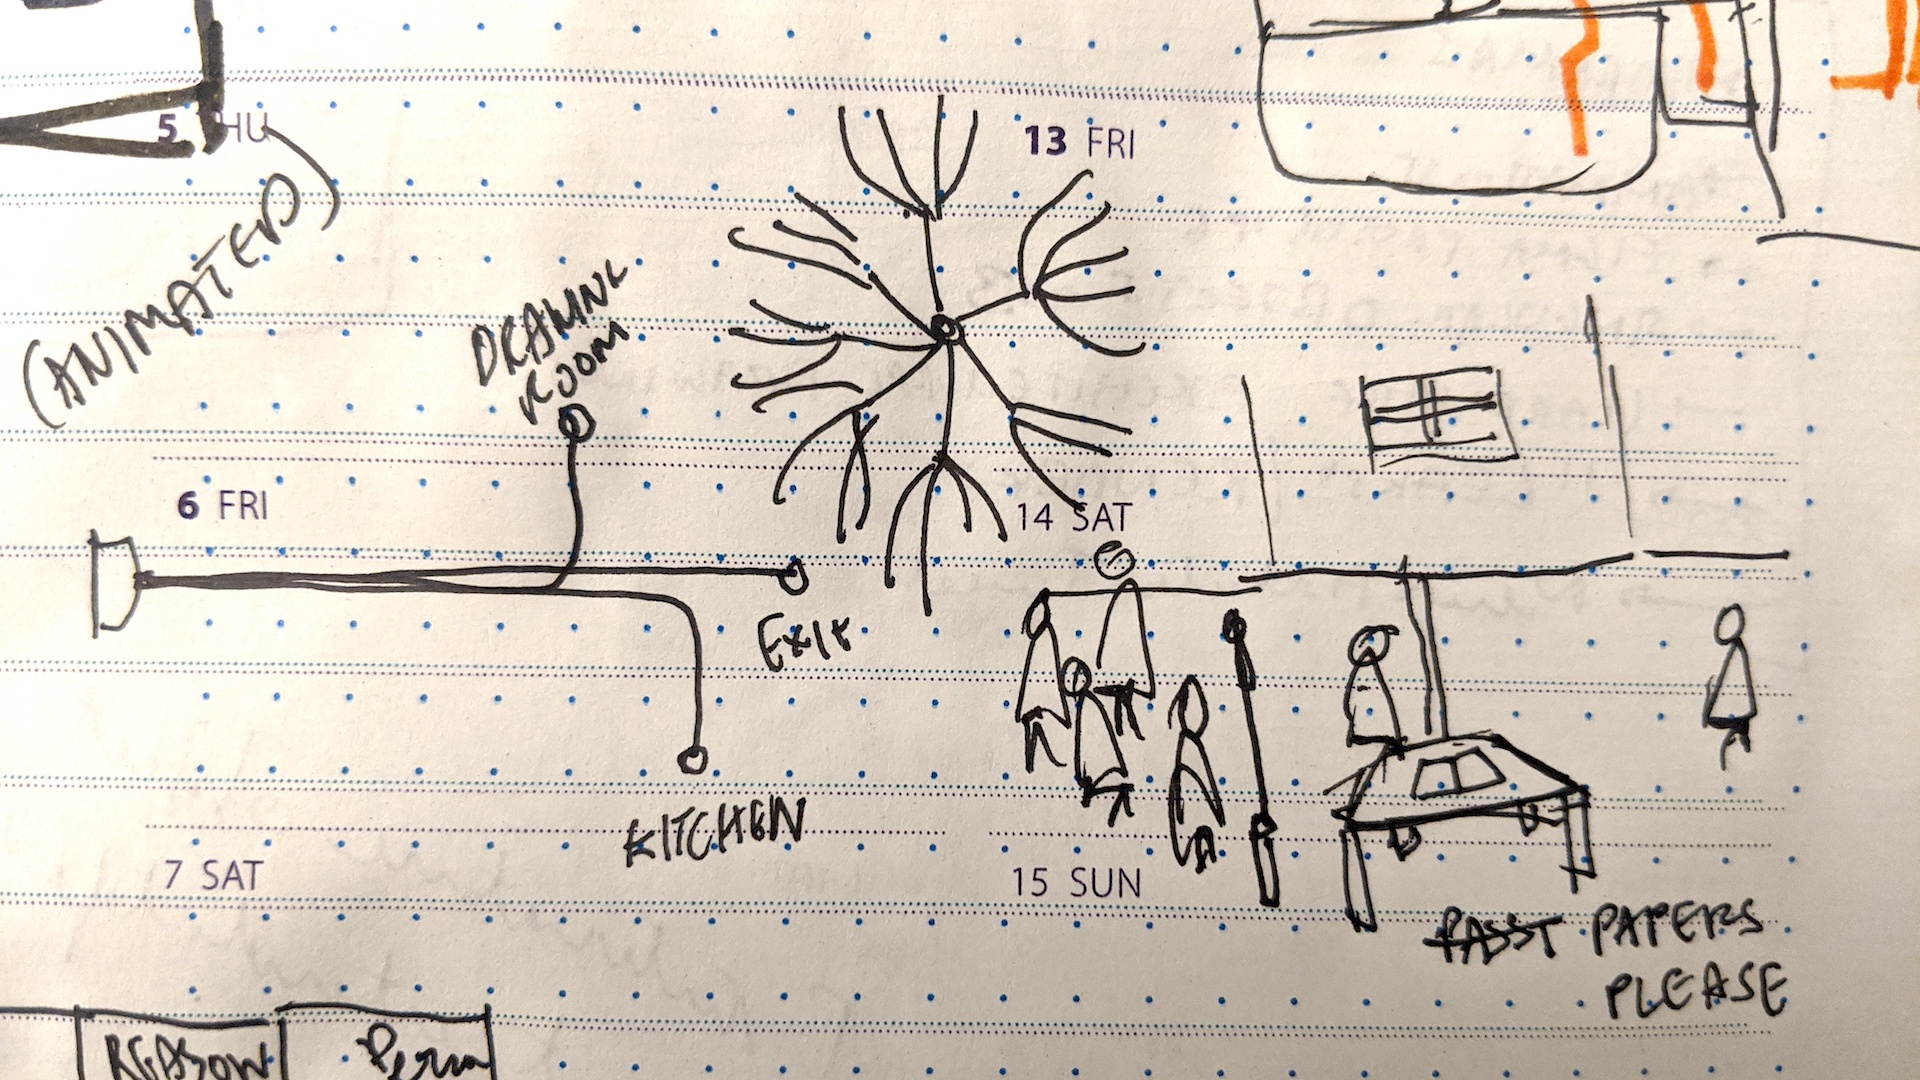 5 THU
(ANIMATED)
13 FRI
DRAWING
ROOM
6 FRI
14 SAT
EXIT
KITCHEN
7 SAT
15 SUN
PAPERS
PLEASE
REASON